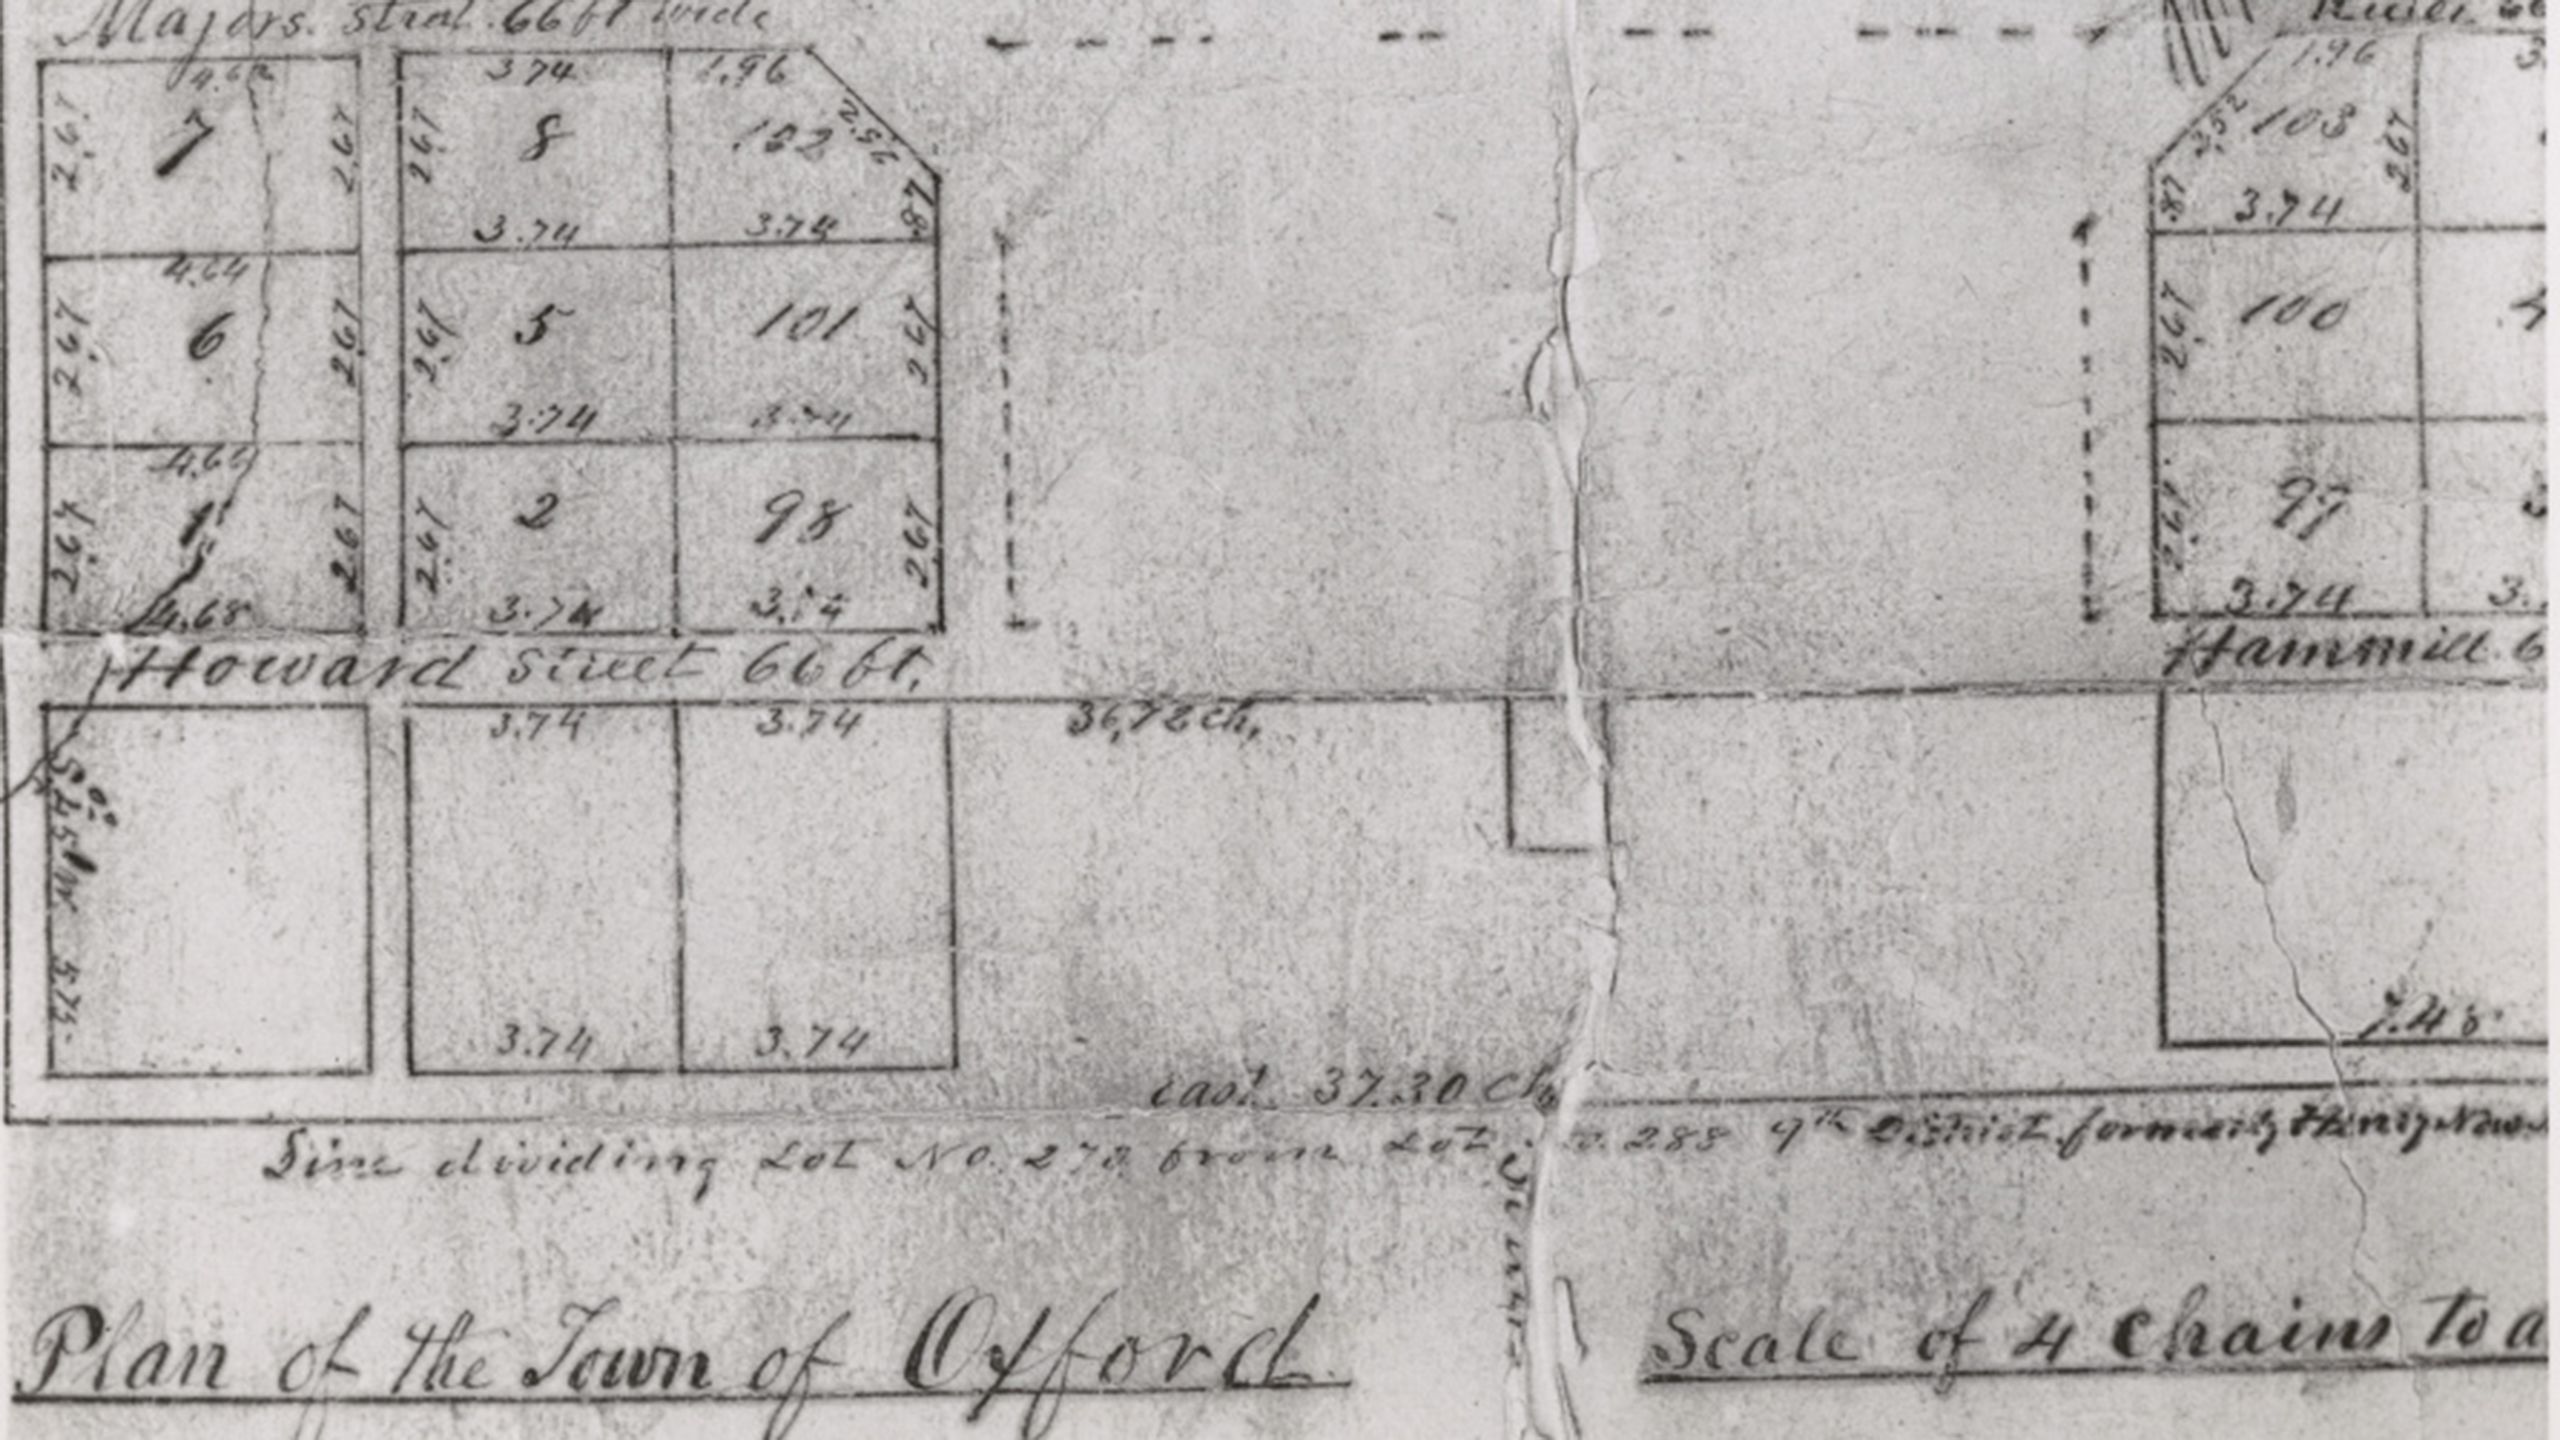 Majors. Street. 66 ft wide
66
4.62
3.74
1.96
1.96
3.
2.67
7
2.67
2.67
8
102
2.56
.87
2.52
103
2.67
.87
3.74
3.74
3.74
3.74
4.64
2.67
6
2.67
2.67
5
101
2.67
2.67
100
4
3.74
3.74
4.64
2.67
1
2.67
2.67
2
98
2.67
2.67
99
4.68
3.74
3.74
3.74
3.
Howard Street 66 ft.
Hammill. 6
3.74
3.74
36,72 ch,
5.75.
3.74
3.74
7.48
east 37.30 Ch
Line dividing Lot No. 273 from Lot 288 9th District formerly Henry
Plan of the Town of Oxford
Scale of 4 Chains to a